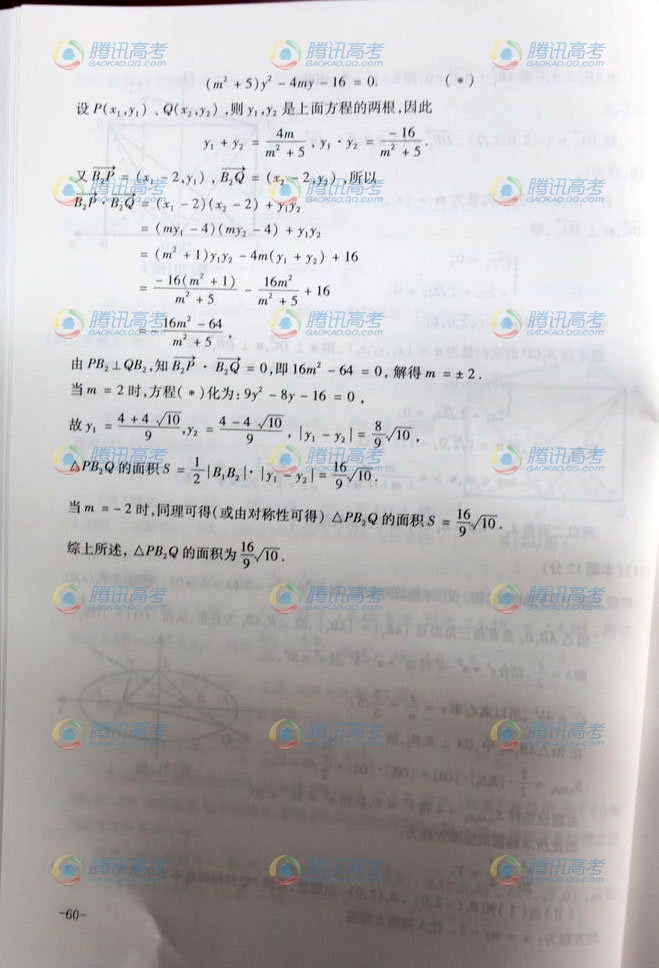 (m² + 5)y² - 4my - 16 = 0. (*)
设 P(x₁,y₁)、Q(x₂,y₂),则 y₁,y₂ 是上面方程的两根,因此
y₁ + y₂ = 4m/(m² + 5), y₁ · y₂ = -16/(m² + 5).
又 B₂P = (x₁ - 2,y₁), B₂Q = (x₂ - 2,y₂),所以
B₂P · B₂Q = (x₁ - 2)(x₂ - 2) + y₁y₂
= (my₁ - 4)(my₂ - 4) + y₁y₂
= (m² + 1)y₁y₂ - 4m(y₁ + y₂) + 16
= -16(m² + 1)/(m² + 5) - 16m²/(m² + 5) + 16
= - (16m² - 64)/(m² + 5),
由 PB₂⊥QB₂,知 B₂P · B₂Q = 0,即 16m² - 64 = 0, 解得 m = ±2.
当 m = 2 时,方程(*)化为: 9y² - 8y - 16 = 0,
故 y₁ = (4 + 4√10)/9, y₂ = (4 - 4√10)/9, |y₁ - y₂| = 8/9 √10,
△PB₂Q 的面积 S = 1/2 |B₁B₂| · |y₁ - y₂| = 16/9 √10.
当 m = -2 时,同理可得(或由对称性可得) △PB₂Q 的面积 S = 16/9 √10.
综上所述, △PB₂Q 的面积为 16/9 √10.
-60-
腾讯高考
GAOKAO.QQ.COM